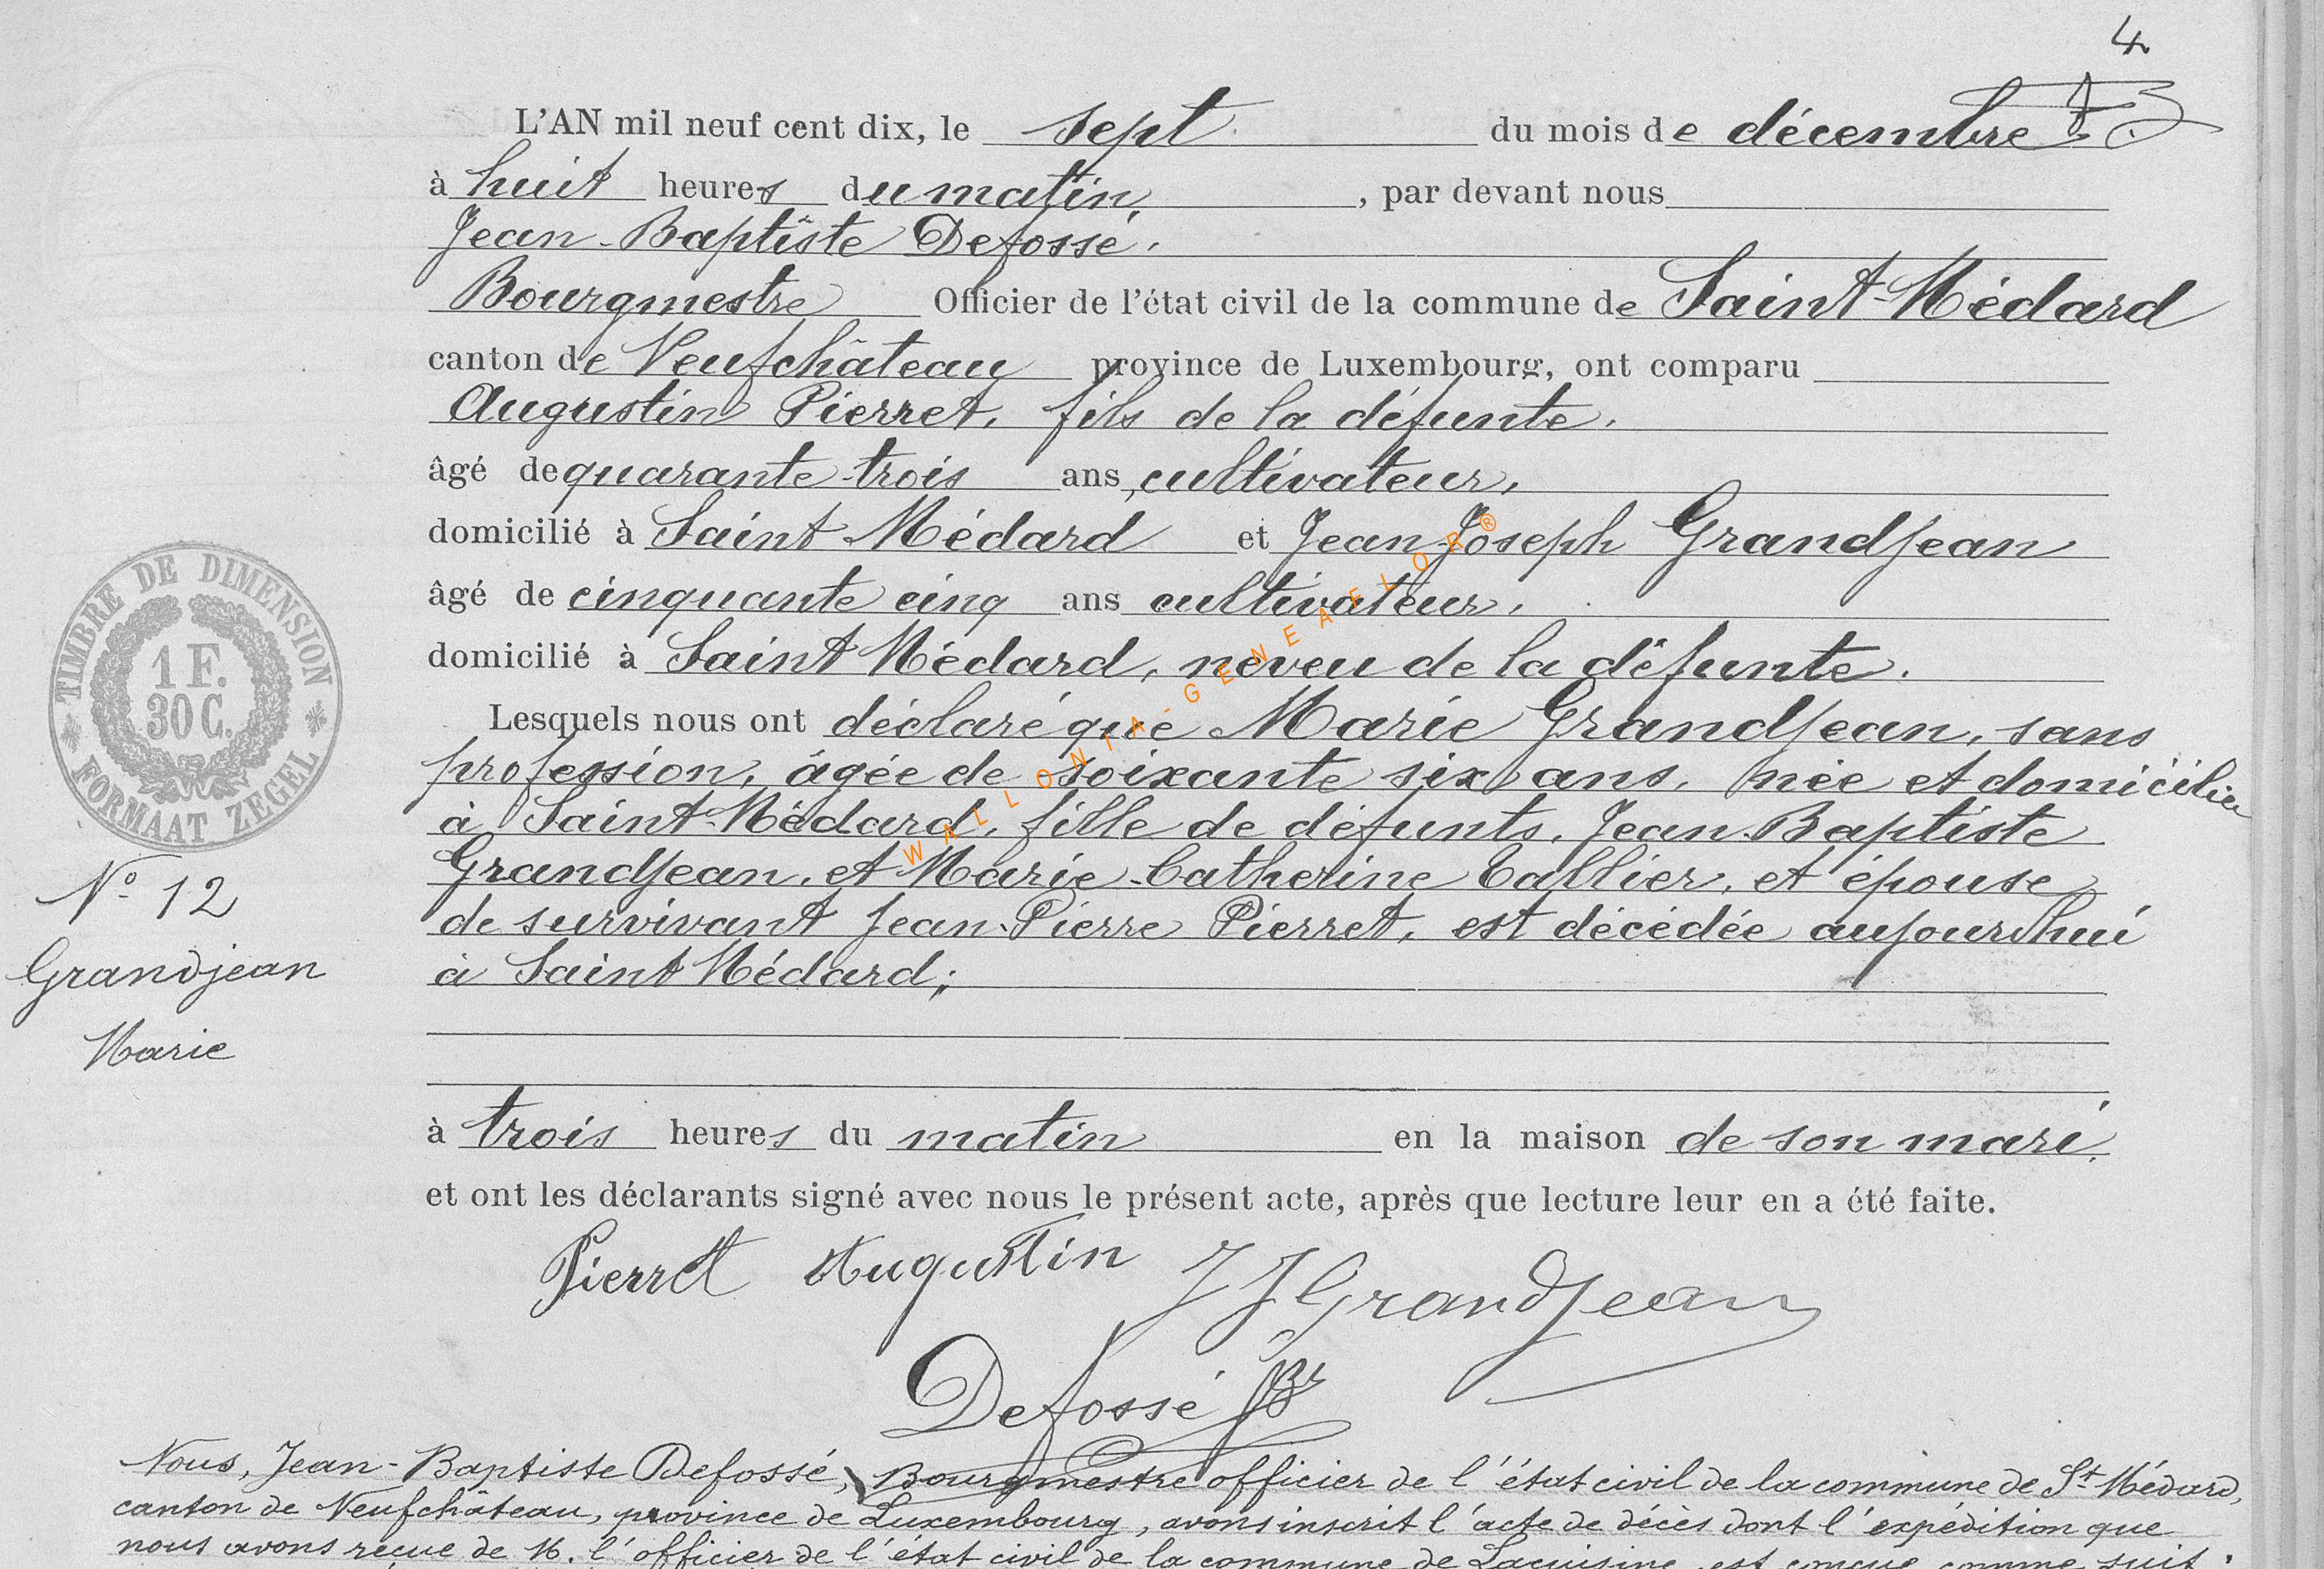 4
L'AN mil neuf cent dix, le sept du mois de décembre
à huit heures du matin, , par devant nous
Jean-Baptiste Defossé,
Bourgmestre Officier de l'état civil de la commune de Saint-Médard
canton de Neufchâteau province de Luxembourg, ont comparu
Augustin Pierret, fils de la défunte,
âgé de quarante-trois ans, cultivateur,
domicilié à Saint-Médard et Jean-Joseph Grandjean
âgé de cinquante cinq ans cultivateur,
domicilié à Saint Médard, neveu de la défunte.
Lesquels nous ont déclaré que Marie Grandjean, sans
profession, âgée de soixante six ans, née et domiciliée
à Saint-Médard, fille de défunts, Jean-Baptiste
Grandjean, et Marie-Catherine Tallier, et épouse
de survivant Jean-Pierre Pierret, est décédée aujourdhui
à Saint Médard;
à trois heures du matin en la maison de son mari,
et ont les déclarants signé avec nous le présent acte, après que lecture leur en a été faite.
Pierret Augustin JJGrandjean
Defossé JB
TIMBRE DE DIMENSION
1 F.
30 C.
FORMAAT ZEGEL
N° 12
Grandjean
Marie
WALLONIA-GENEAFLOR®
Nous, Jean-Baptiste Defossé, Bourgmestre officier de l'état civil de la commune de St Médard,
canton de Neufchâteau, province de Luxembourg, avons inscrit l'acte de décès dont l'expédition que
nous avons reçue de M. l'officier de l'état civil de la commune de Lacuisine, est conçue comme suit :